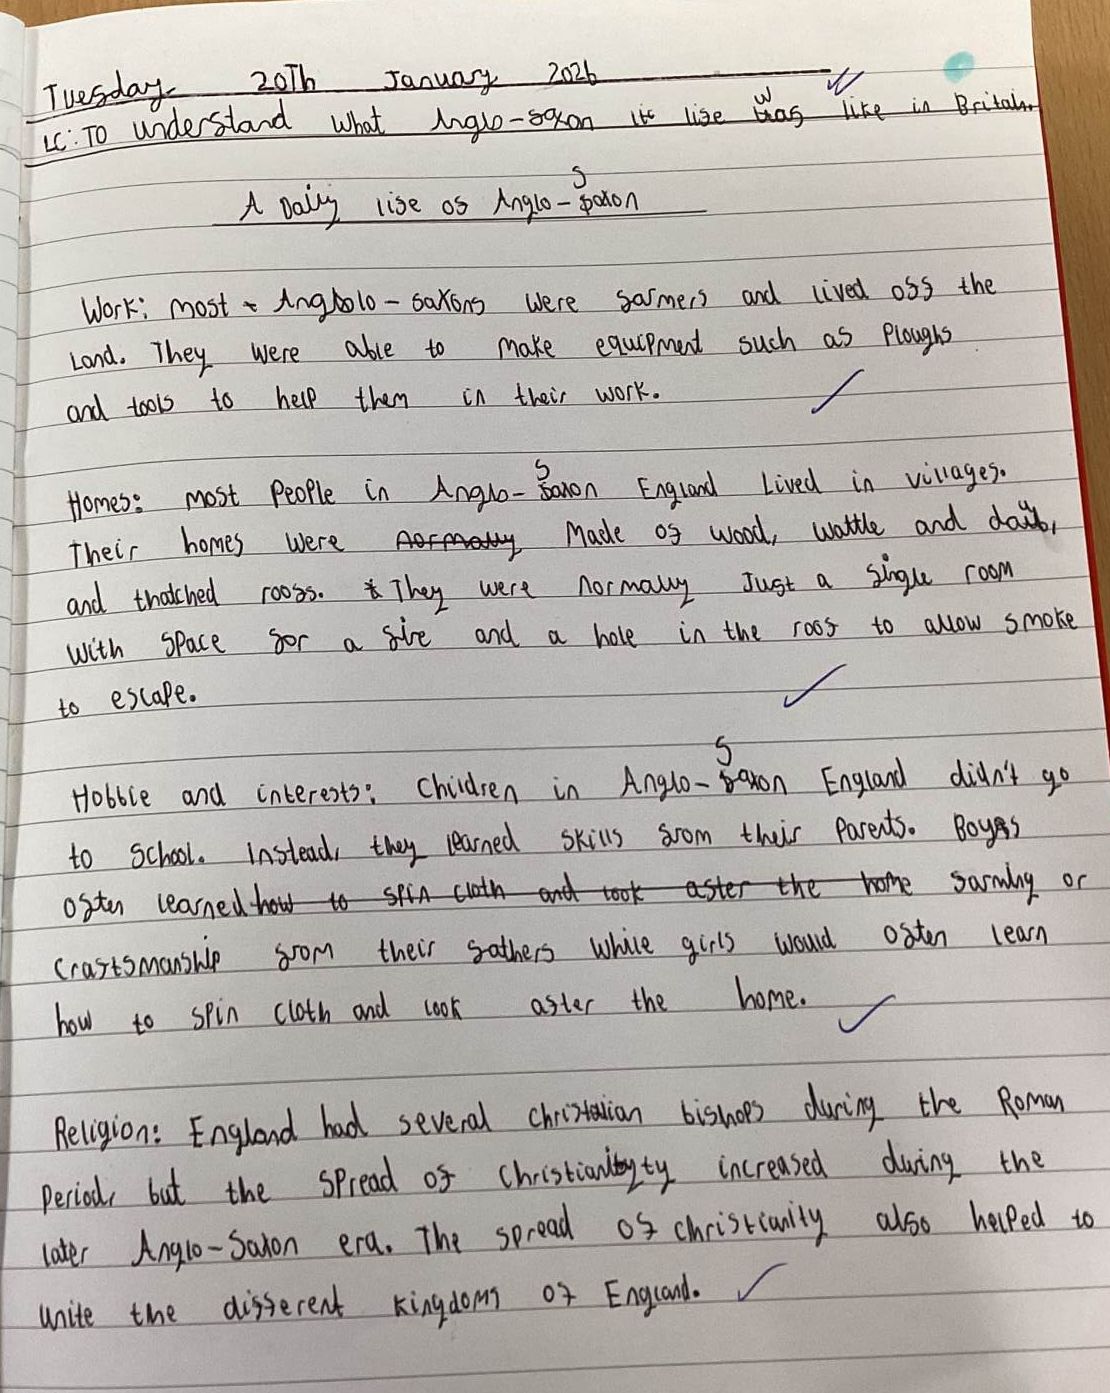 Tuesday 20Th January 2026
LC: TO understand what Anglo-saxon life was like in Britain.
A Daily life of Anglo-Saxon
Work: most Anglo-saxons were farmers and lived off the
Land. They were able to make equipment such as Ploughs
and tools to help them in their work.
Homes: most People in Anglo-Saxon England Lived in villages.
Their homes were normally Made of wood, wattle and daub,
and thatched roofs. They were normally Just a single room
with space for a fire and a hole in the roof to allow smoke
to escape.
Hobbie and interests: Children in Anglo-Saxon England didn't go
to School. Instead, they learned skills from their Parents. Boys
often learned how to spin cloth and look after the home farming or
craftsmanship from their fathers while girls would often learn
how to spin cloth and look after the home.
Religion: England had several christian bishops during the Roman
Period, but the spread of christianity increased during the
later Anglo-Saxon era. The spread of christianity also helped to
unite the different kingdoms of England.